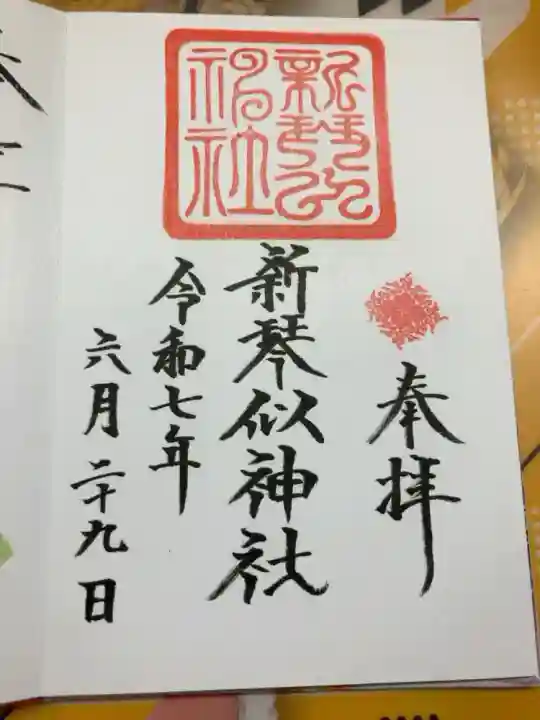 奉拝
新琴似神社
新琴似神社
令和七年
六月二十九日